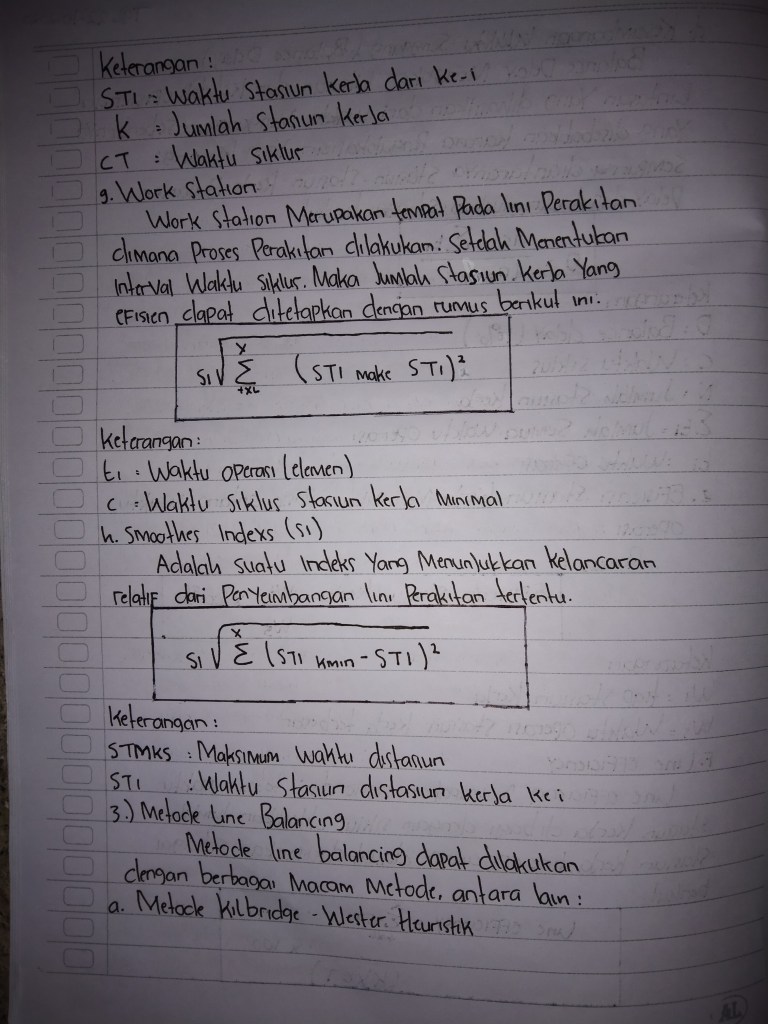 Keterangan :
STi : Waktu Stasiun Kerja dari Ke-i
K : Jumlah Stasiun Kerja
CT : Waktu Siklus
g. Work Station
Work Station Merupakan tempat Pada lini Perakitan
dimana Proses Perakitan dilakukan. Setelah Menentukan
Interval Waktu Siklus. Maka Jumlah Stasiun Kerja Yang
efisien dapat ditetapkan dengan rumus berikut ini.
SI √ x Σ (STI make STI)²
Keterangan :
ti : Waktu operasi (elemen)
C : Waktu Siklus Stasiun Kerja Minimal
h. Smoothes Indexs (SI)
Adalah suatu Indeks Yang Menunjukkan Kelancaran
relatif dari Penyeimbangan lini Perakitan tertentu.
SI √ x Σ (STI Kmin - STI)²
Keterangan :
STMKS : Maksimum Waktu distasiun
STI : Waktu Stasiun distasiun kerja Ke i
3.) Metode Line Balancing
Metode line balancing dapat dilakukan
dengan berbagai Macam Metode, antara lain :
a. Metode Kilbridge - Wester Heuristik